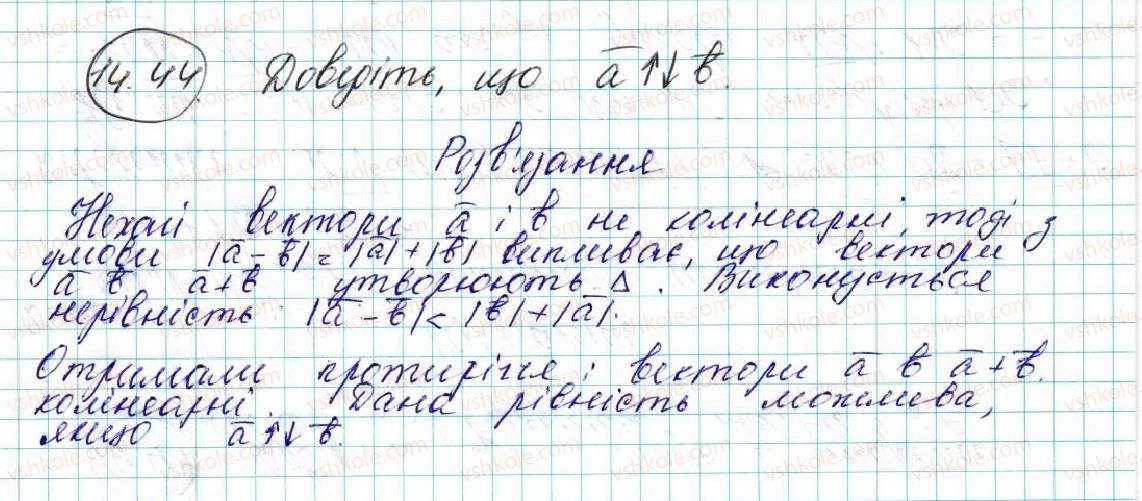 14.44. Доведіть, що a̅ ↑↓ b̅.
Розв'язання
Нехай вектори a̅ і b̅ не колінеарні, тоді з
умови |a̅ - b̅| = |a̅| + |b̅| випливає, що вектори
a̅ b̅ a̅+b̅ утворюють Δ. Виконується
нерівність |a̅ - b̅| < |b̅| + |a̅|.
Отримали протиріччя; вектори a̅ b̅ a̅+b̅.
колінеарні. Дана рівність можлива,
якщо a̅ ↑↓ b̅.